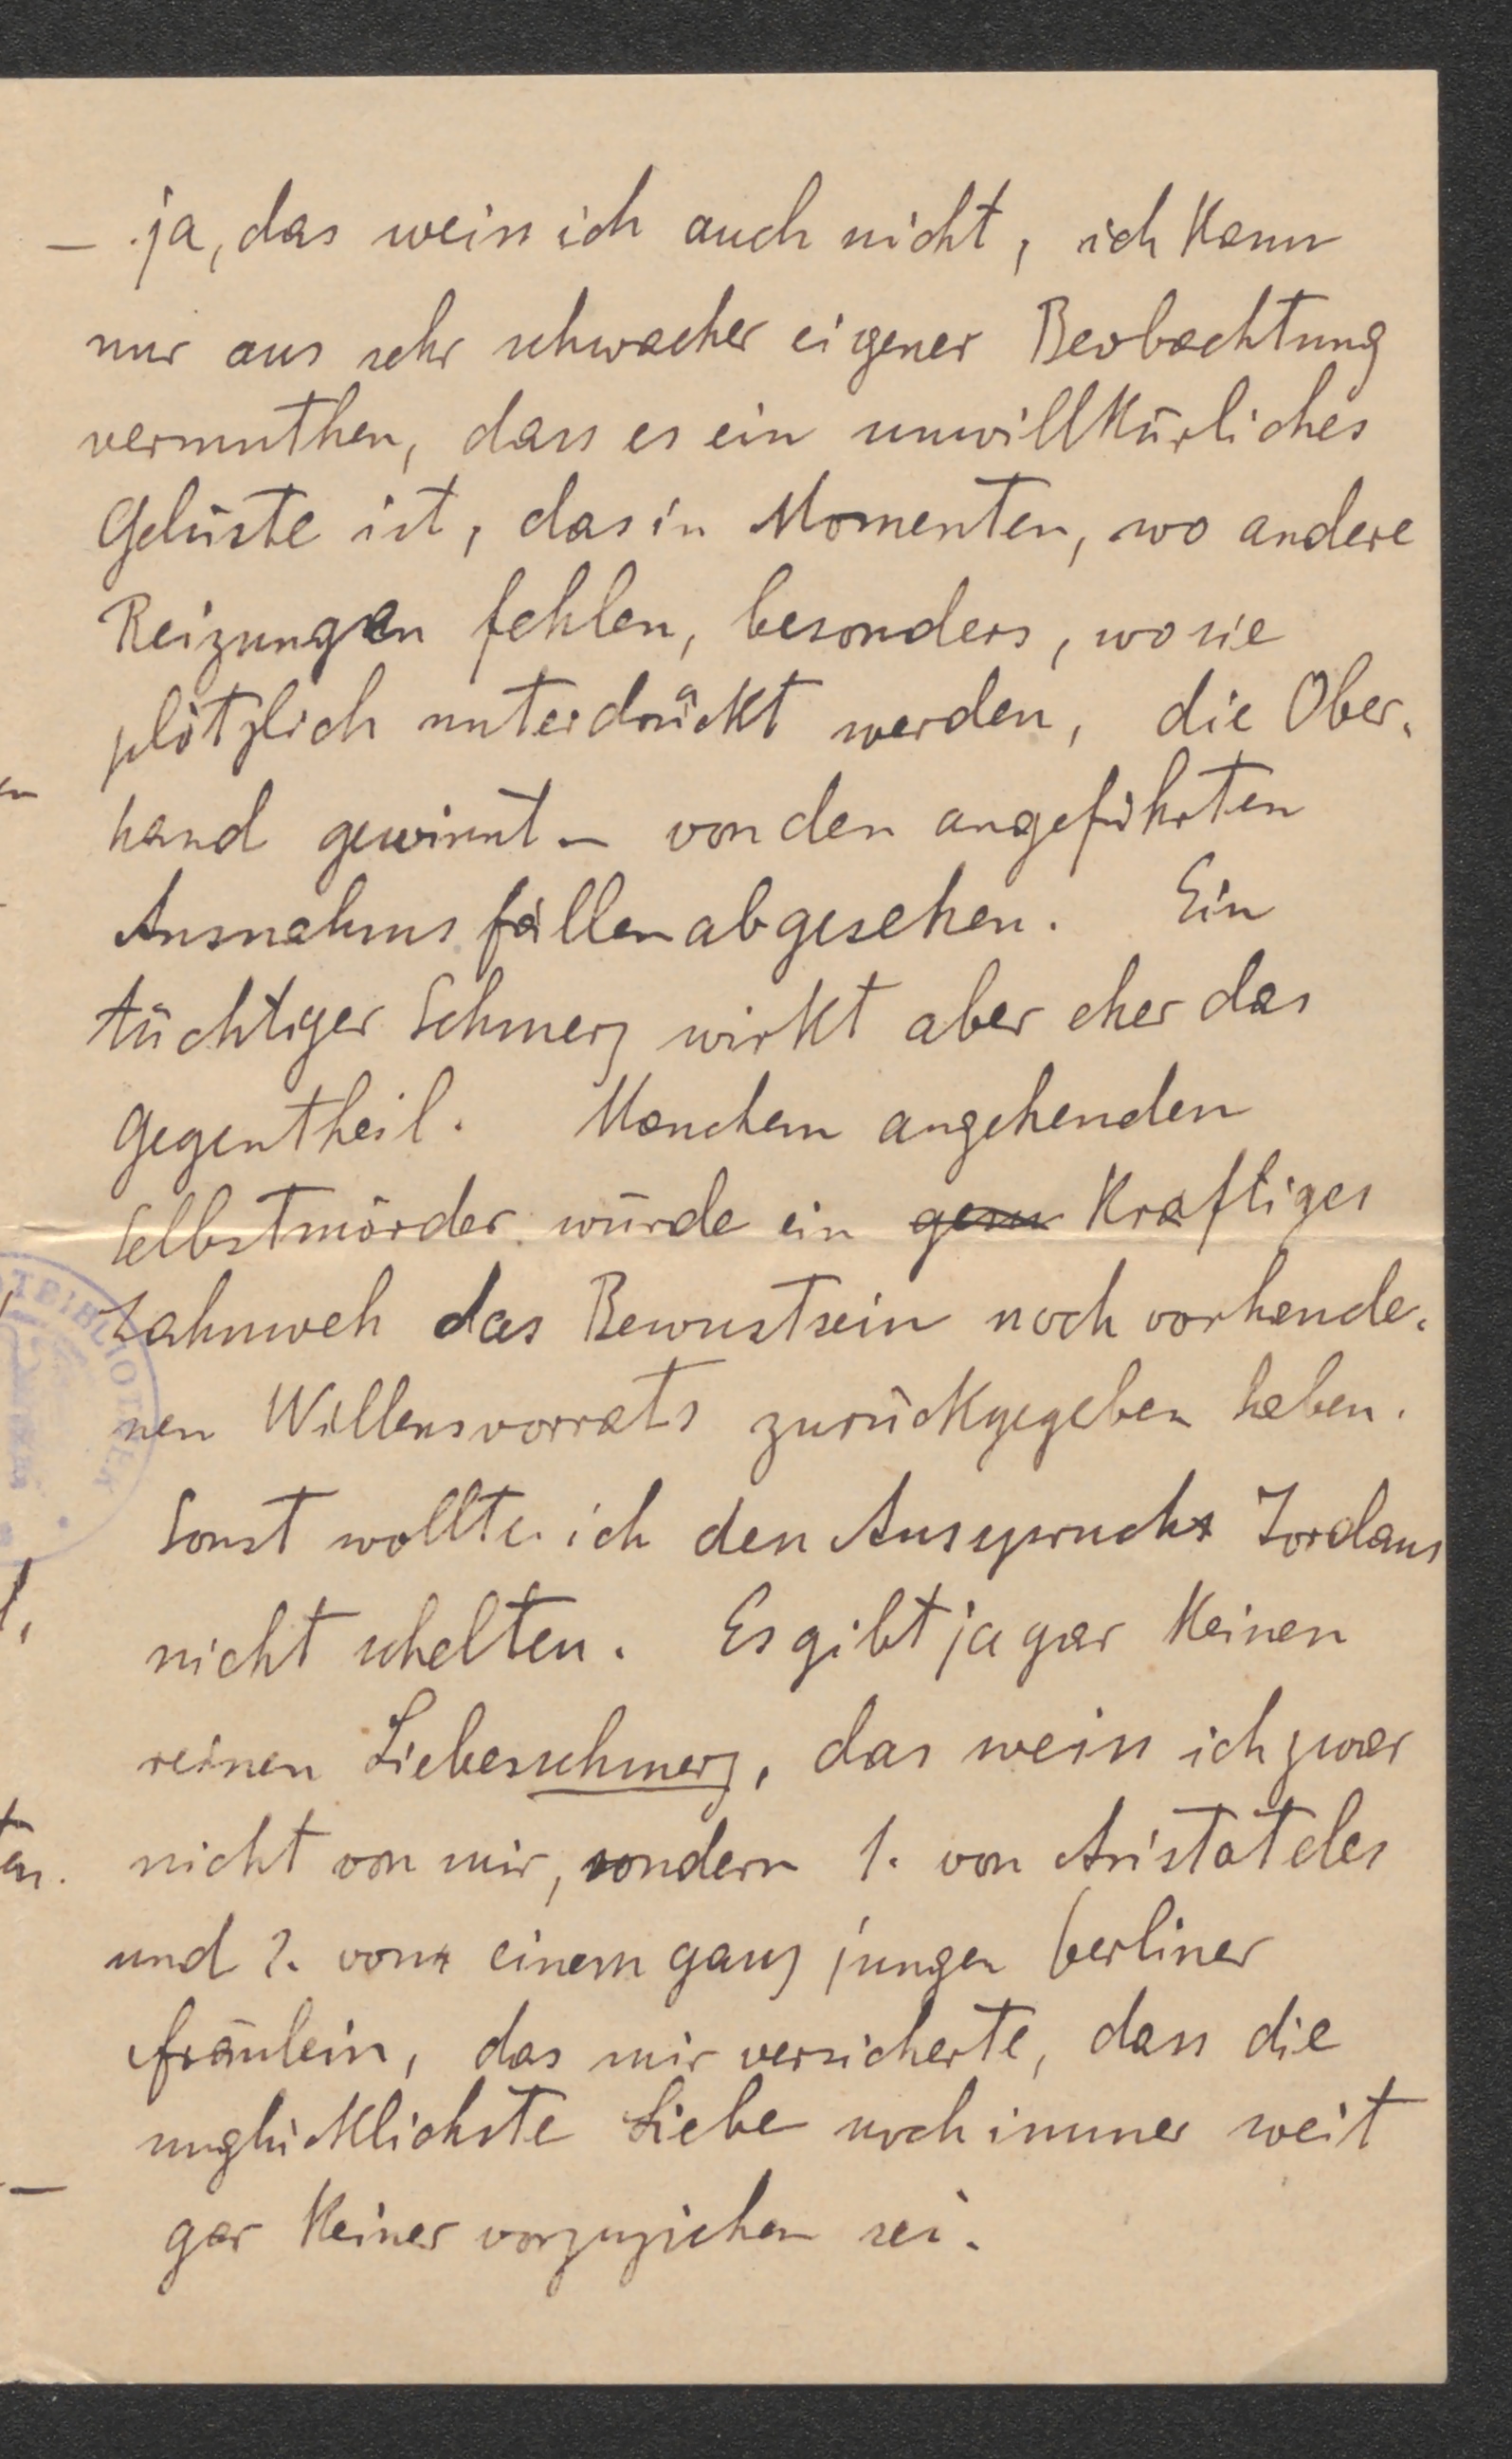 – ja, das weiss ich auch nicht, ich kann
nur aus sehr schwacher eigener Beobachtung
vermuthen, dass es ein unwillkürliches
Gelüste ist, das in Momenten, wo andere
Reizungen fehlen, besonders, wo sie
plötzlich unterdrückt werden, die Ober-
hand gewinnt – von den angeführten
Ausnahmsfällen abgesehen. Ein
tüchtiger Schmerz wirkt aber eher das
Gegentheil. Manchem angehenden
Selbstmörder würde ein kräftiges
Zahnweh das Bewustsein noch vorhande-
nen Willensvorrats zurückgegeben haben.
Sonst wollte ich den Ausspruch Jordans
nicht schelten. Es gibt ja gar keinen
reinen Liebesschmerz, das weiss ich zwar
nicht von mir, sondern 1. von Aristoteles
und 2. von einem ganz jungen berliner
Fräulein, das mir versicherte, dass die
unglücklichste Liebe noch immer weit
gar keiner vorzuziehen sei.